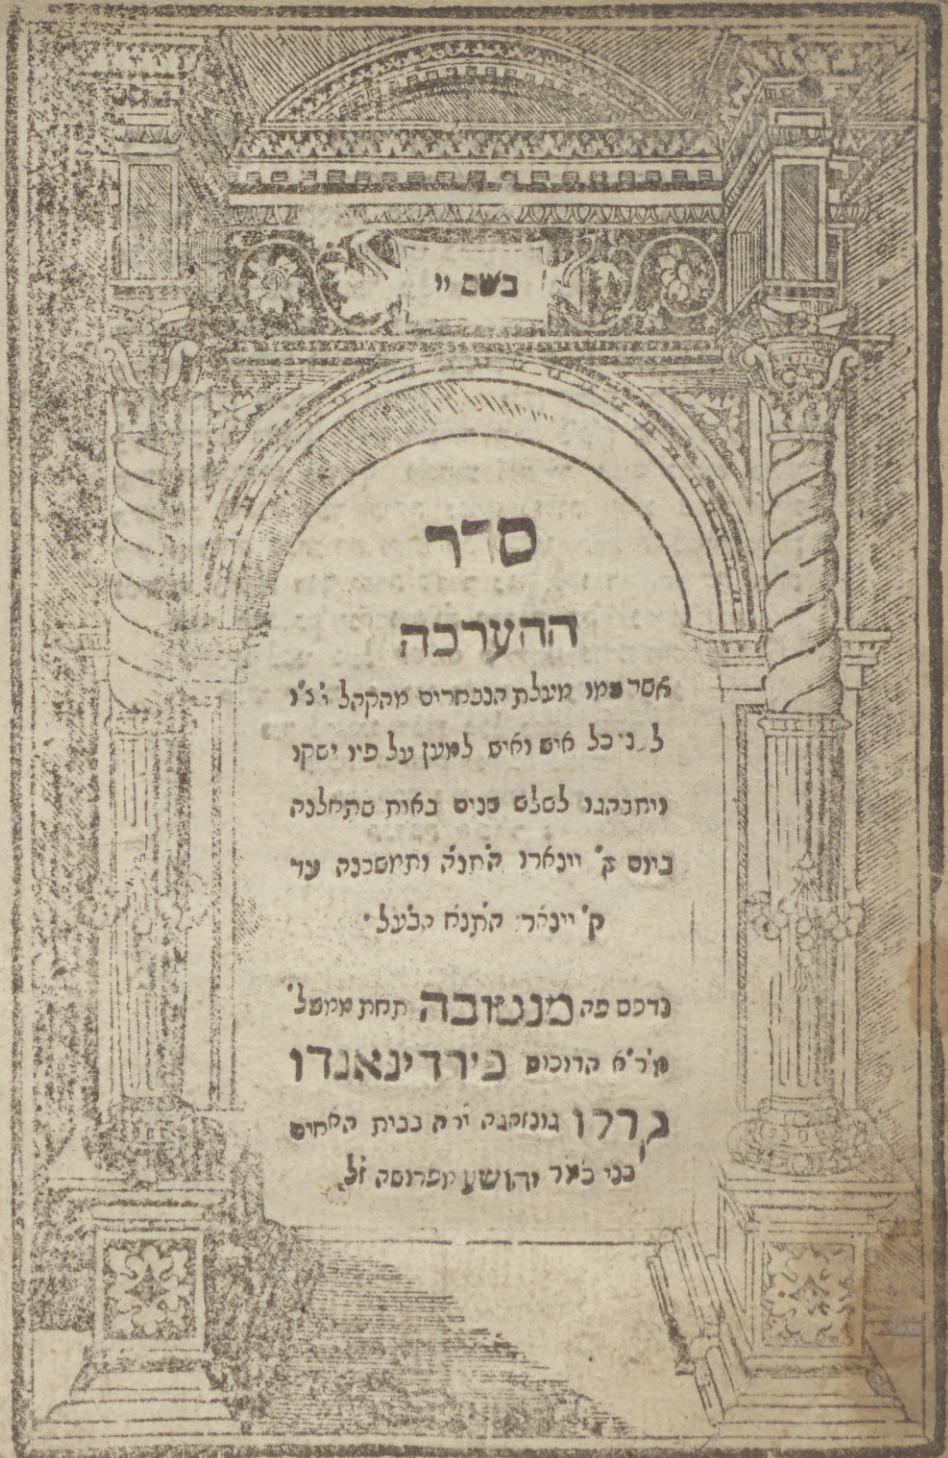 בשם יי
סדר
ההערכה
אשר שמו מעלת הנבחרים מהקהל י״צ״ו
כל איש ואיש למען על פיו ישקו
ויתנהגו לשלש שנים באות שתחלנה
ביום ק׳ יינארו התנ״ה ותמשכנה עד
ק׳ יינאר׳ התנ״ח הבע״ל׳
נדפס פה מנטובה תחת ממשל׳
אד״א הדוכוס פירדינאנדו
קרלו גונזאגה יר״ה בבית האחים
בני כמ״ר יהושע מפרושה ז״ל